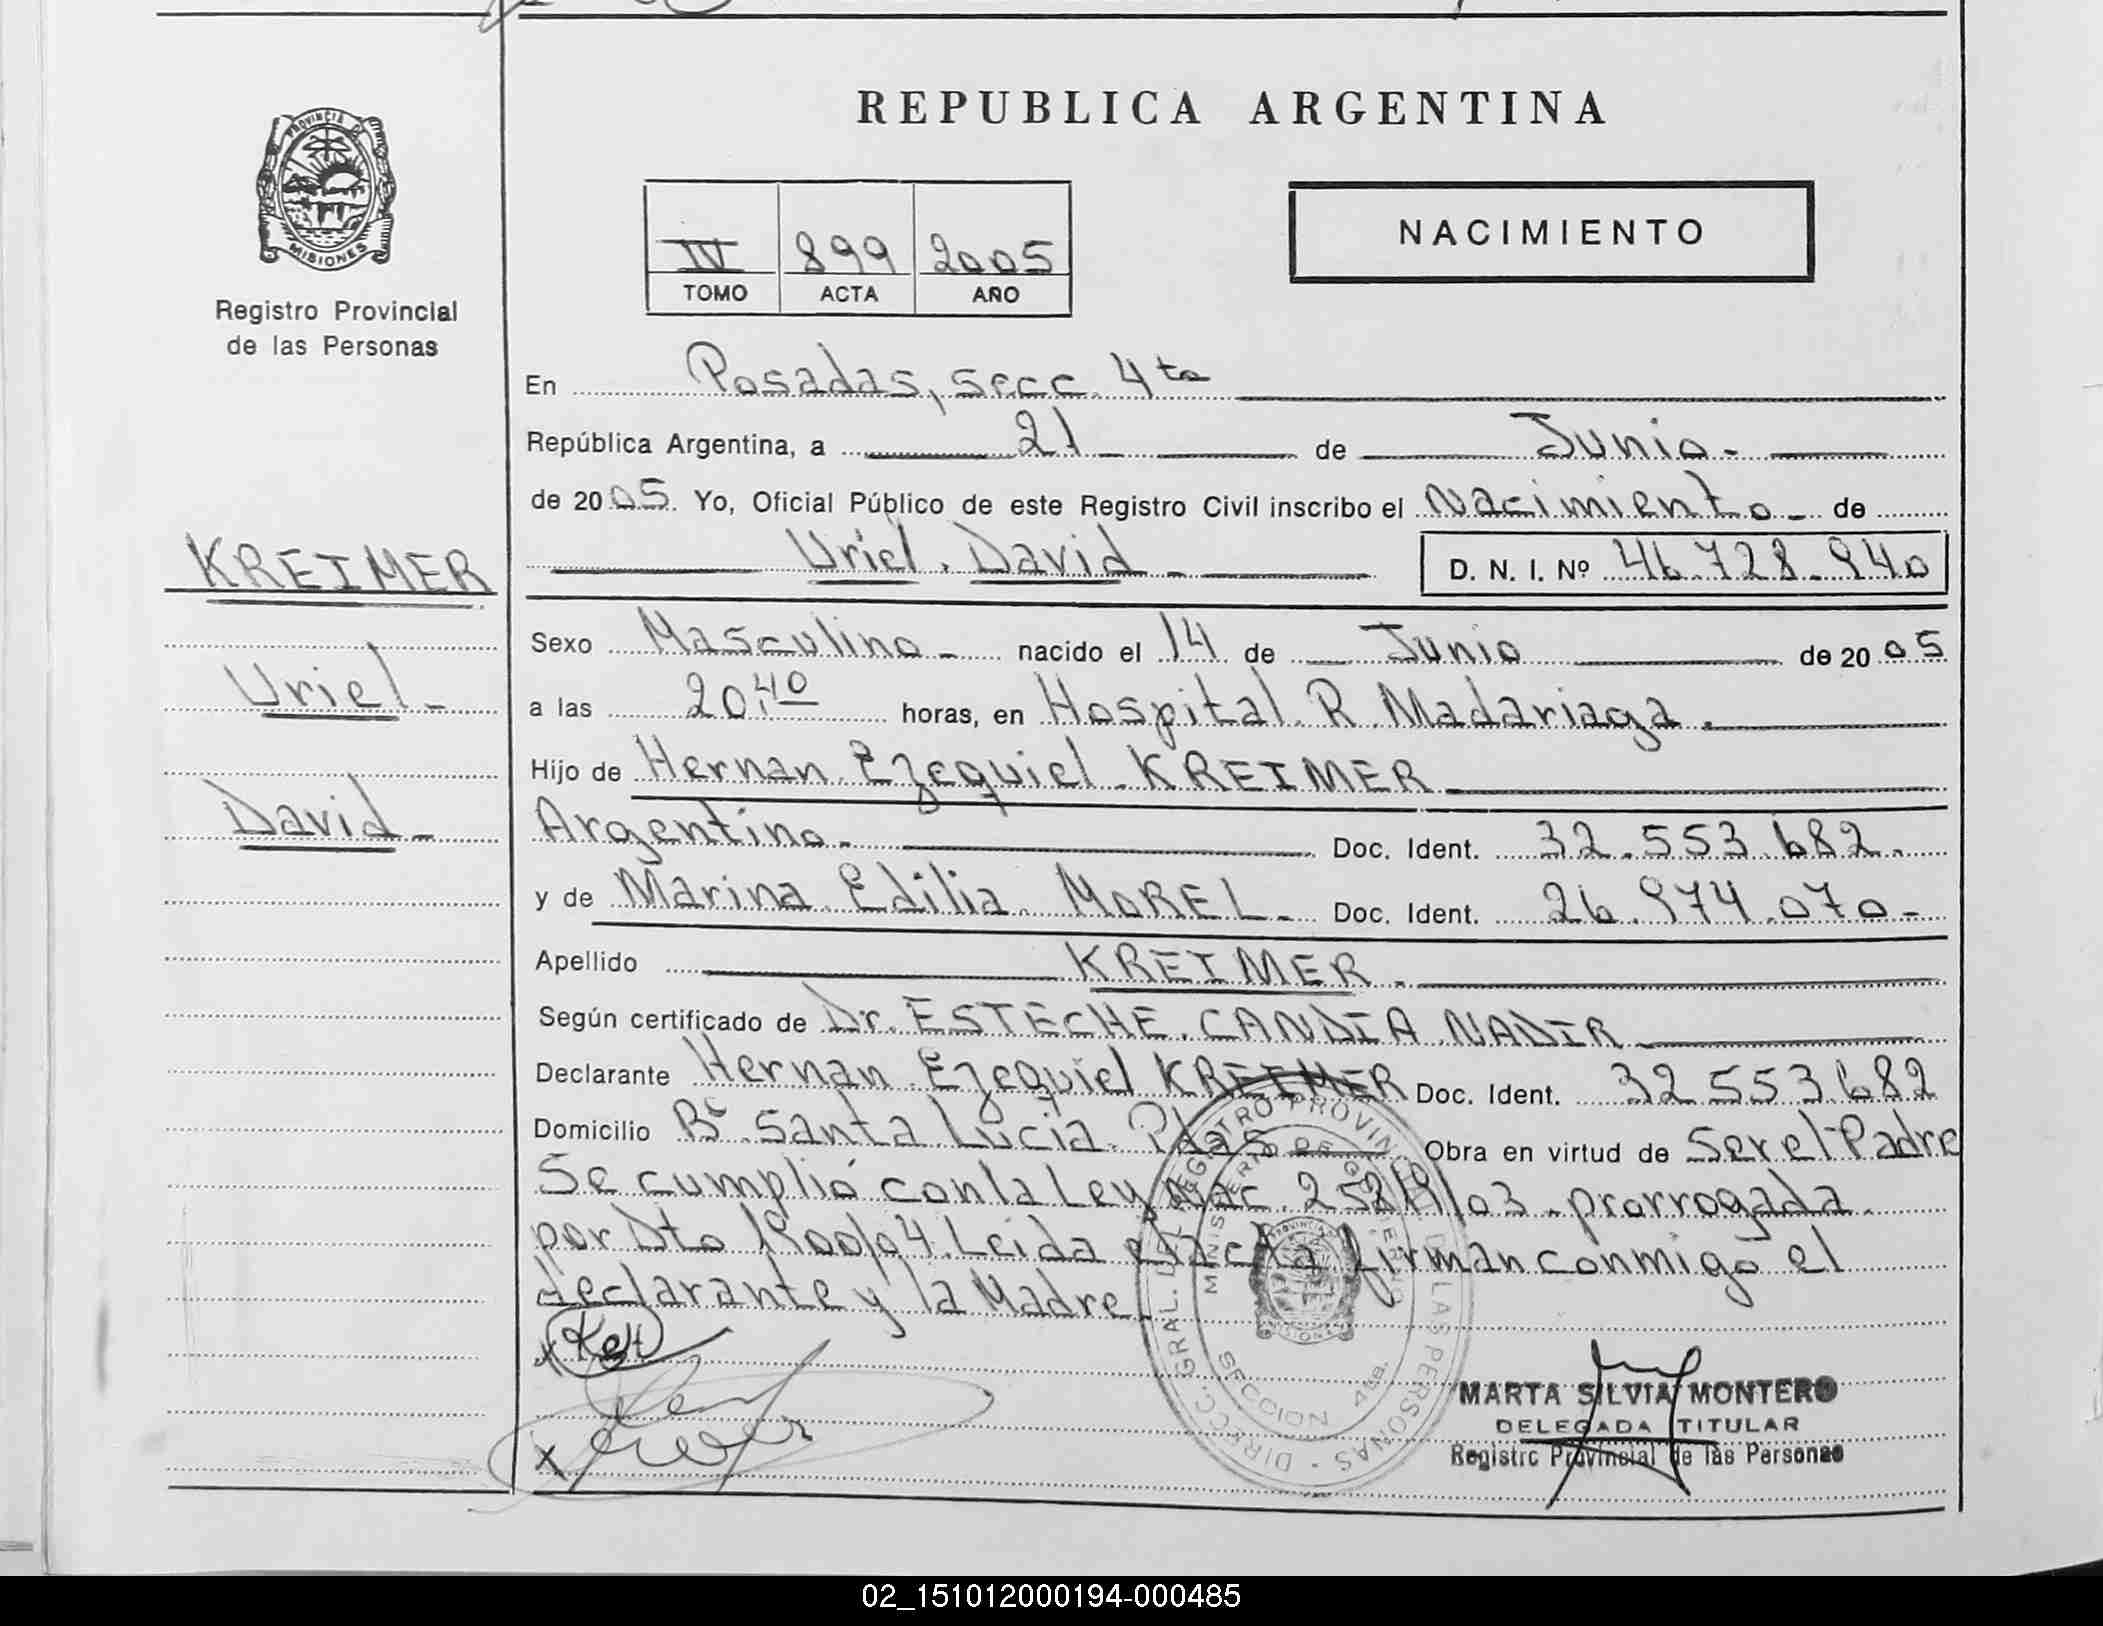 REPUBLICA ARGENTINA
PROVINCIA DE
MISIONES
Registro Provincial
de las Personas
NACIMIENTO
IV 899 2005
TOMO ACTA AÑO
En Posadas, secc. 4ta
República Argentina, a 21 de Junio.
de 2005. Yo, Oficial Público de este Registro Civil inscribo el Nacimiento de
Uriel David D. N. I. Nº 46.728.940
KREIMER
Uriel
David
Sexo Masculino nacido el 14 de Junio de 2005
a las 20,40 horas, en Hospital R. Madariaga.
Hijo de Hernan Ezequiel KREIMER
Argentino Doc. Ident. 32.553.682.
y de Marina Edilia MOREL Doc. Ident. 26.974.070
Apellido KREIMER.
Según certificado de Dr. ESTECHE CANDIA NADIR
Declarante Hernan Ezequiel KREIMER Doc. Ident. 32.553.682
Domicilio Bº Santa Lucia. Pdas Obra en virtud de Ser el Padre
Se cumplió con la Ley Nac. 25819/03 prorrogada
por Dto 1900/04. Leida el acta firman conmigo el
declarante y la Madre
DIRECC. GRAL. DEL REGISTRO PROVINCIAL DE LAS PERSONAS
MINISTERIO DE GOBIERNO
SECCION 4ta.
MISIONES
MARTA SILVIA MONTERO
DELEGADA TITULAR
Registro Provincial de las Personas
02_151012000194-000485